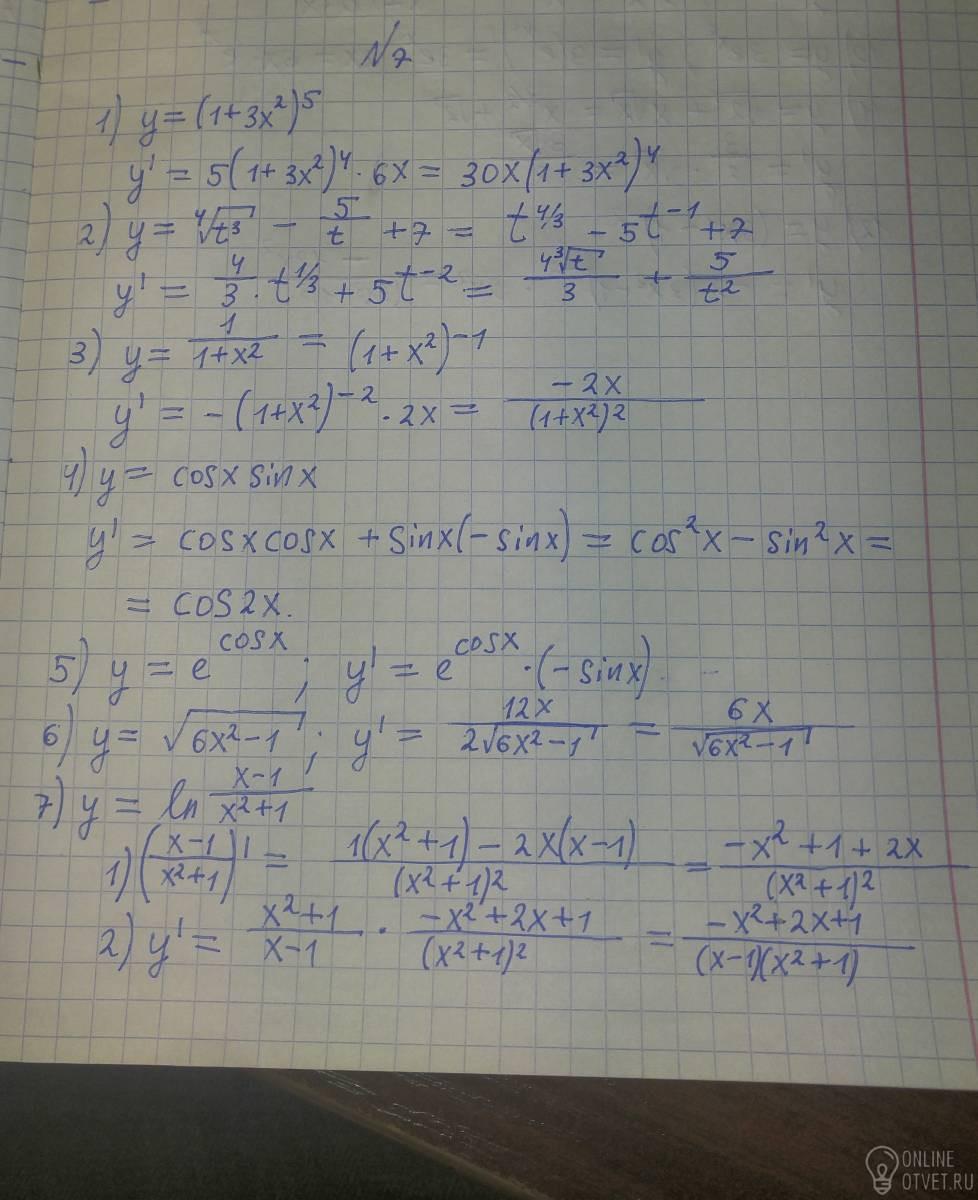 N7
1) y = (1+3x²)⁵
y' = 5(1+3x²)⁴ · 6x = 30x(1+3x²)⁴
2) y = ⁴√t³ − 5/t + 7 = t^4/3 − 5t⁻¹ + 7
y' = 4/3 · t^1/3 + 5t⁻² = 4³√t/3 + 5/t²
3) y = 1/(1+x²) = (1+x²)⁻¹
y' = −(1+x²)⁻² · 2x = −2x/(1+x²)²
4) y = cosx sinx
y' = cosxcosx + sinx(−sinx) = cos²x − sin²x =
= cos2x.
5) y = e^cosx ; y' = e^cosx · (−sinx).
6) y = √(6x²−1) ; y' = 12x/(2√(6x²−1)) = 6x/√(6x²−1)
7) y = ln (x−1)/(x²+1)
1) ((x−1)/(x²+1))' = (1(x²+1) − 2x(x−1))/(x²+1)² = (−x²+1+2x)/(x²+1)²
2) y' = (x²+1)/(x−1) · (−x²+2x+1)/(x²+1)² = (−x²+2x+1)/((x−1)(x²+1))
ONLINE
OTVET.RU